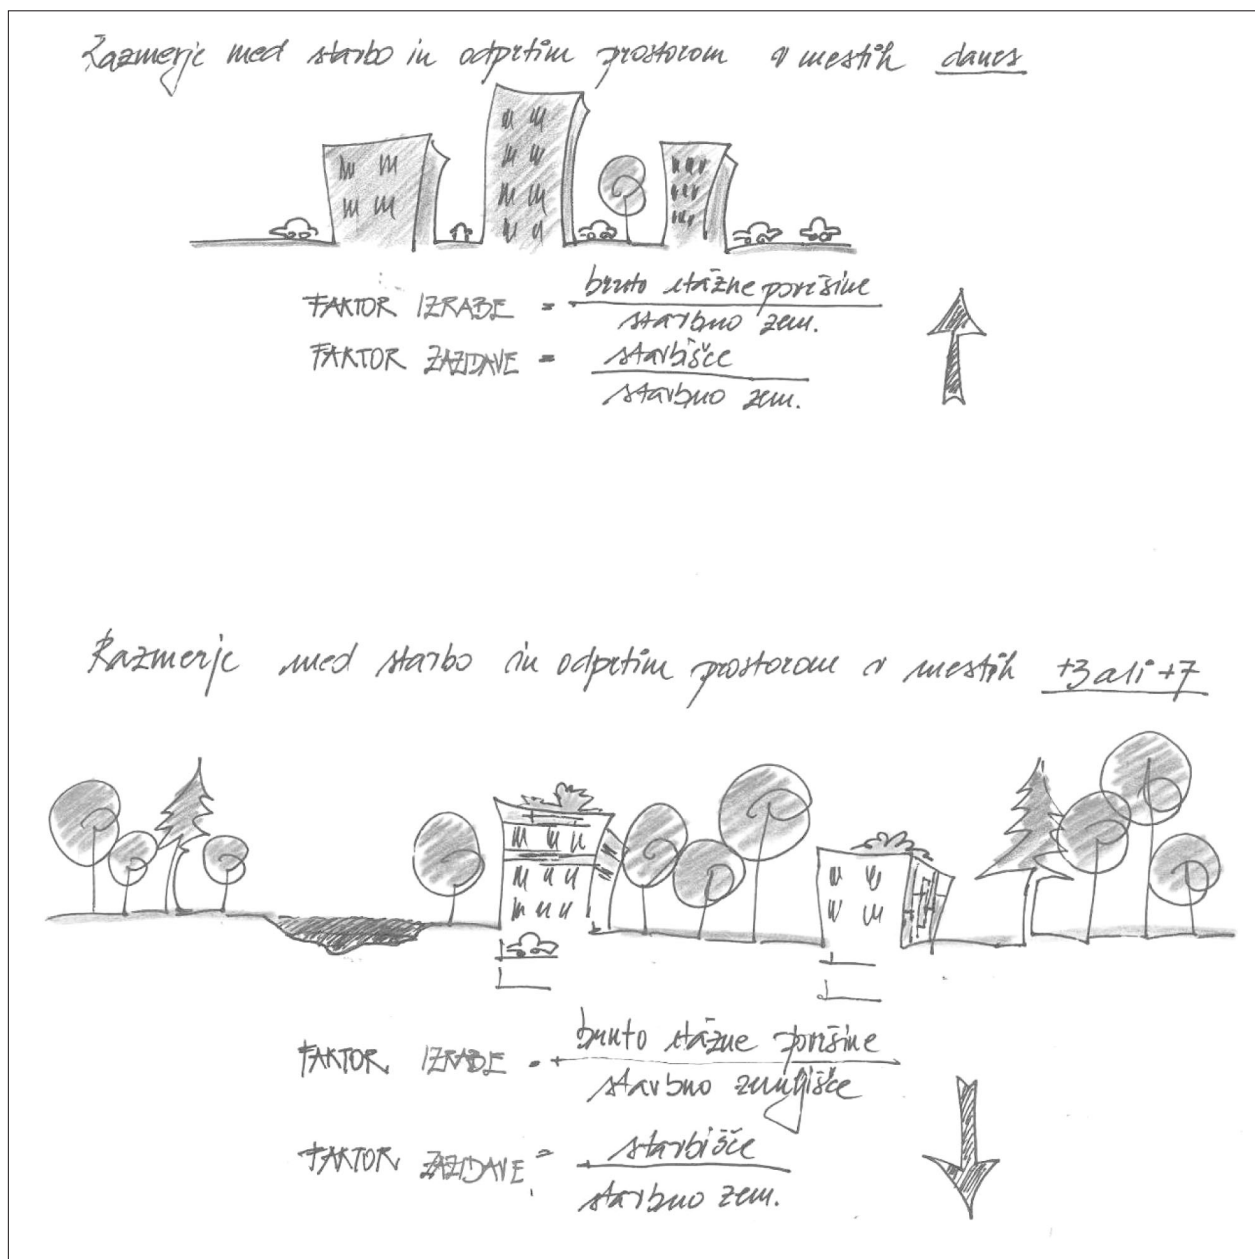 Razmerje med stavbo in odprtim prostorom v mestih danes
FAKTOR IZRABE = bruto etažne površine
stavbno zem.
FAKTOR ZAZIDAVE = stavbišče
stavbno zem.
Razmerje med stavbo in odprtim prostorom v mestih +3 ali +7
FAKTOR IZRABE = bruto etažne površine
stavbno zemljišče
FAKTOR ZAZIDAVE = stavbišče
stavbno zem.